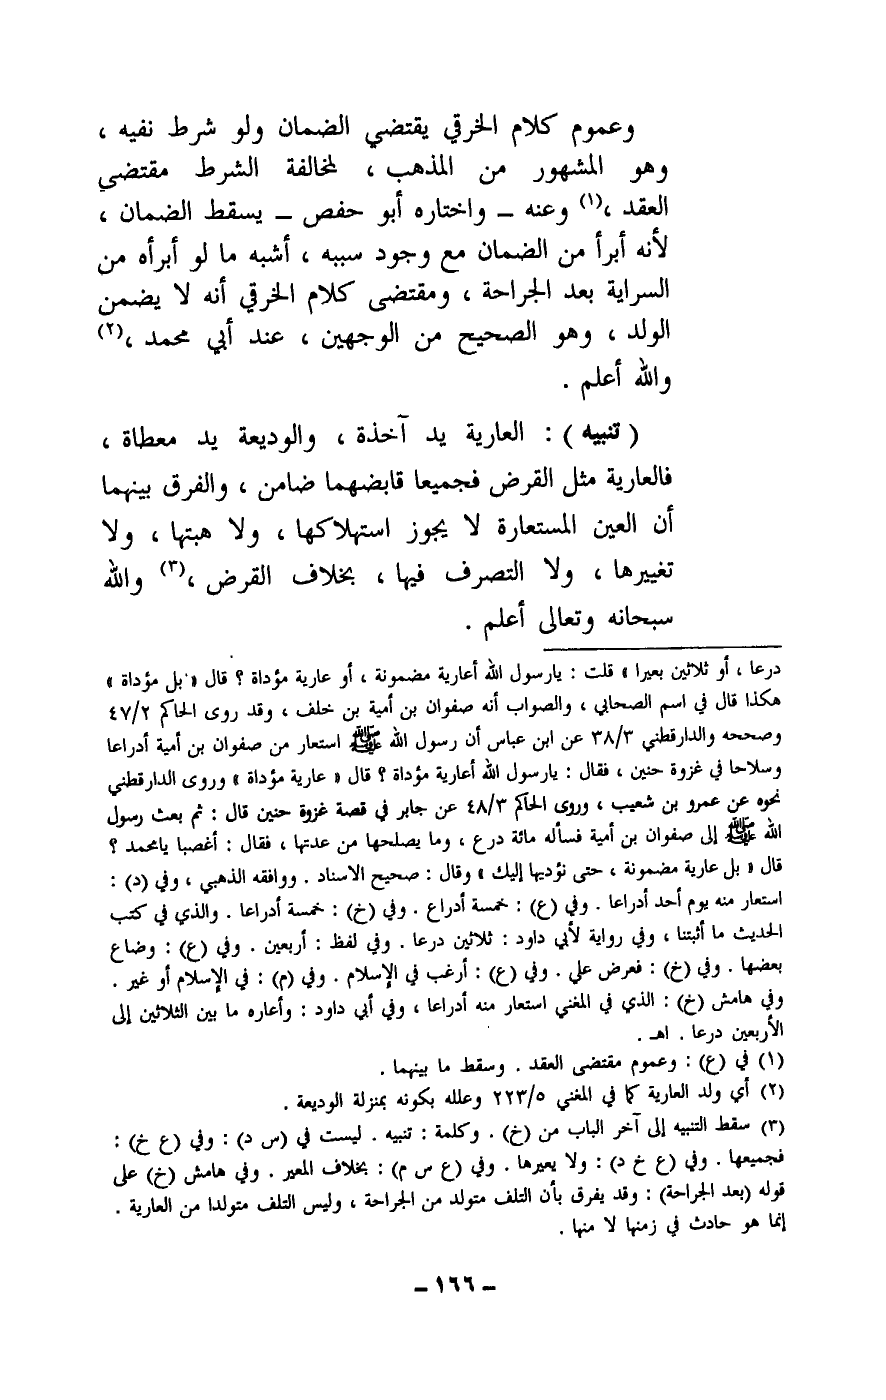 وعموم كلام الخرقي يقتضي الضمان ولو شرط نفيه ،
وهو المشهور من المذهب ، لمخالفة الشرط مقتضي
العقد ،(١) وعنه – واختاره أبو حفص – يسقط الضمان ،
لأنه أبرأ من الضمان مع وجود سببه ، أشبه ما لو أبرأه من
السراية بعد الجراحة ، ومقتضى كلام الخرقي أنه لا يضمن
الولد ، وهو الصحيح من الوجهين ، عند أبي محمد ،(٢)
والله أعلم .
( تنبيه ) : العارية يد آخذة ، والوديعة يد معطاة ،
فالعارية مثل القرض فجميعا قابضهما ضامن ، والفرق بينهما
أن العين المستعارة لا يجوز استهلاكها ، ولا هبتها ، ولا
تغييرها ، ولا التصرف فيها ، بخلاف القرض ،(٣) والله
سبحانه وتعالى أعلم .
درعا ، أو ثلاثين بعيرا » قلت : يارسول الله أعارية مضمونة ، أو عارية مؤداة ؟ قال « بل مؤداة »
هكذا قال في اسم الصحابي ، والصواب أنه صفوان بن أمية بن خلف ، وقد روى الحاكم ٤٧/٢
وصححه والدارقطني ٣٨/٣ عن ابن عباس أن رسول الله ﷺ استعار من صفوان بن أمية أدراعا
وسلاحا في غزوة حنين ، فقال : يارسول الله أعارية مؤداة ؟ قال « عارية مؤداة » وروى الدارقطني
نحوه عن عمرو بن شعيب ، وروى الحاكم ٤٨/٣ عن جابر في قصة غزوة حنين قال : ثم بعث رسول
الله ﷺ إلى صفوان بن أمية فسأله مائة درع ، وما يصلحها من عدتها ، فقال : أغصبا يامحمد ؟
قال « بل عارية مضمونة ، حتى نؤديها إليك » وقال : صحيح الاسناد . ووافقه الذهبي ، وفي (د) :
استعار منه يوم أحد أدراعا . وفي (ع) : خمسة أدراع . وفي (خ) : خمسة أدراعا . والذي في كتب
الحديث ما أثبتنا ، وفي رواية لأبي داود : ثلاثين درعا . وفي لفظ : أربعين . وفي (ع) : وضاع
بعضها . وفي (خ) : فعرض علي . وفي (ع) : أرغب في الإسلام . وفي (م) : في الإسلام أو غير .
وفي هامش (خ) : الذي في المغني استعار منه أدراعا ، وفي أبي داود : وأعاره ما بين الثلاثين إلى
الأربعين درعا . اهـ .
(١) في (ع) : وعموم مقتضى العقد . وسقط ما بينهما .
(٢) أي ولد العارية كما في المغني ٢٢٣/٥ وعلله بكونه بمنزلة الوديعة .
(٣) سقط التنبيه إلى آخر الباب من (خ) . وكلمة : تنبيه . ليست في (س د) : وفي (ع خ) :
فجميعها . وفي (ع خ د) : ولا يعيرها . وفي (ع س م) : بخلاف المعير . وفي هامش (خ) على
قوله (بعد الجراحة) : وقد يفرق بأن التلف متولد من الجراحة ، وليس التلف متولدا من العارية .
إنما هو حادث في زمنها لا منها .
– ١٦٦ –